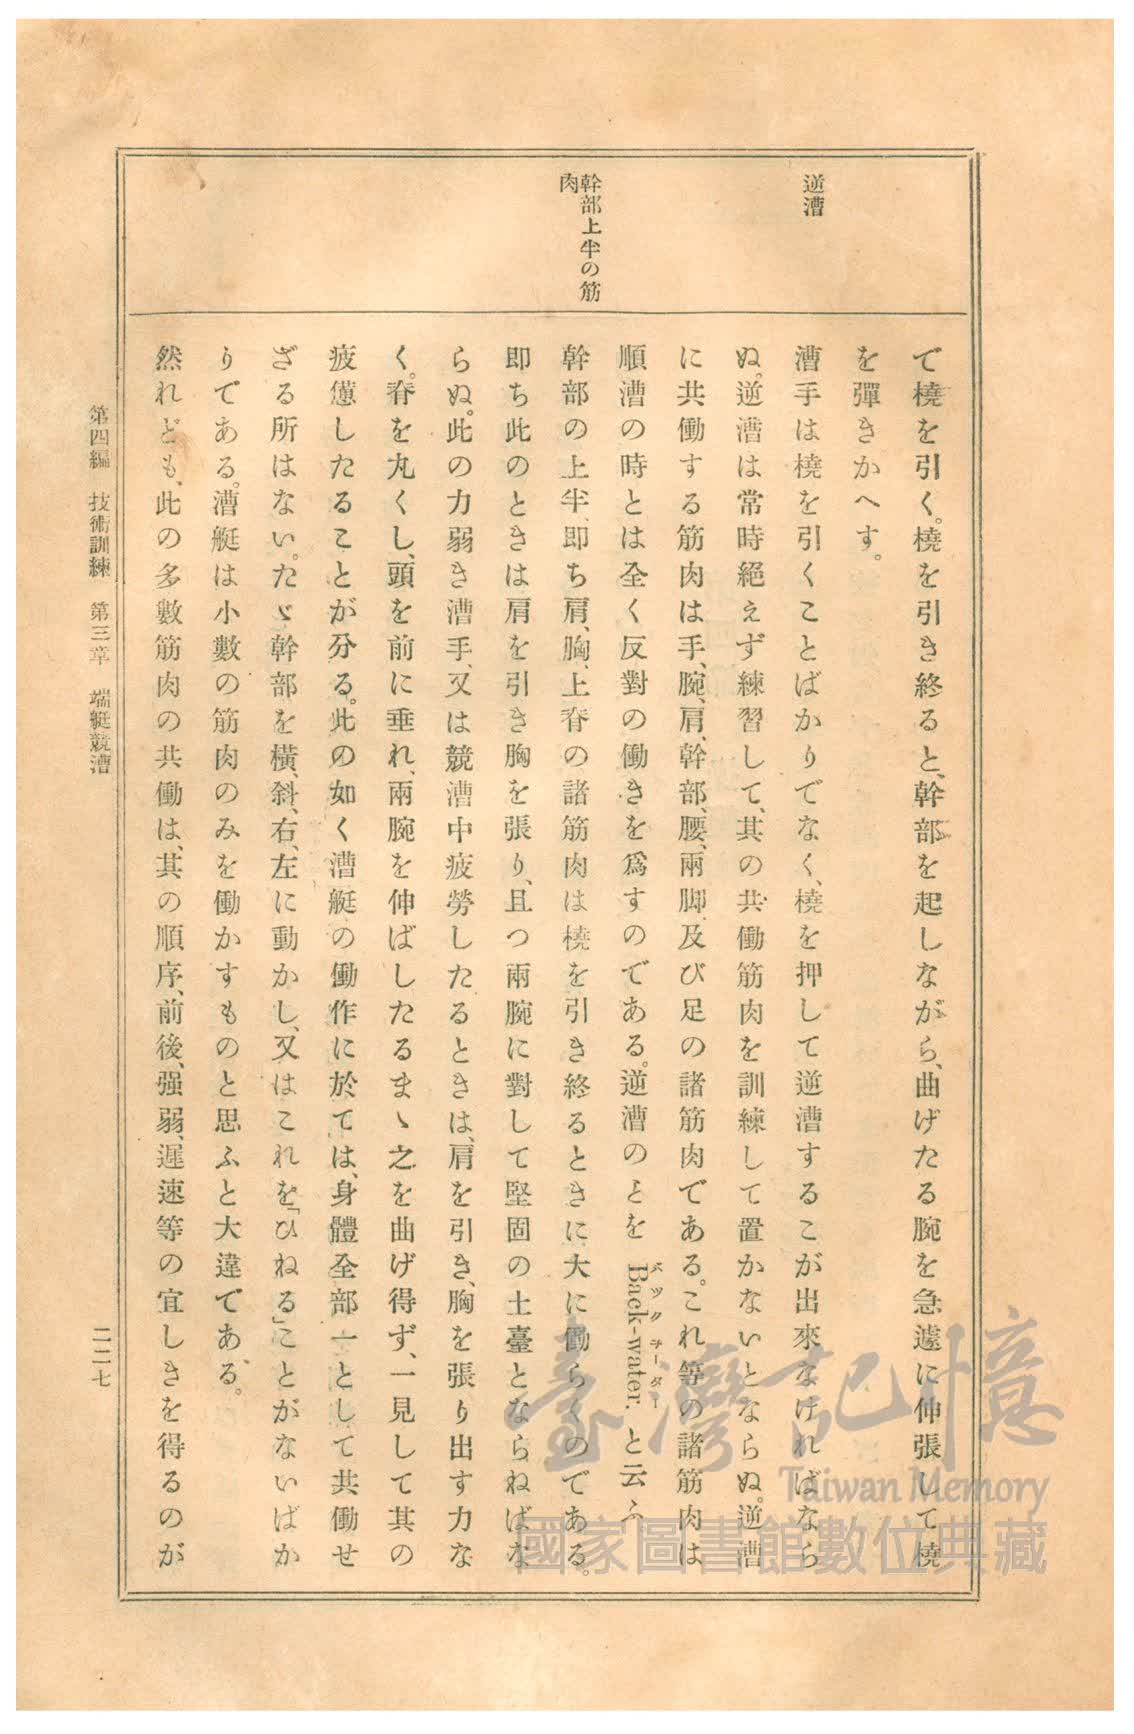 逆漕
幹部上半の筋
肉
で橈を引く。橈を引き終ると、幹部を起しながら、曲げたる腕を急遽に伸張して橈
を彈きかへす。
漕手は橈を引くことばかりでなく、橈を押して逆漕するこが出來なければなら
ぬ。逆漕は常時絕えず練習して、其の共働筋肉を訓練して置かないとならぬ。逆漕
に共働する筋肉は手、腕、肩、幹部、腰、兩脚、及び足の諸筋肉である。これ等の諸筋肉は
順漕の時とは全く反對の働きを爲すのである。逆漕のとを Back-water. と云ふ
バックヲーター
幹部の上半、即ち肩、胸、上脊の諸筋肉は橈を引き終るときに、大に働らくのである。
即ち此のときは肩を引き胸を張り、且つ兩腕に對して堅固の土臺とならねばな
らぬ。此の力弱き漕手、又は競漕中疲勞したるときは、肩を引き、胸を張り出す力な
く。脊を丸くし、頭を前に垂れ、兩腕を伸ばしたるまゝ之を曲げ得ず、一見して其の
疲憊したることが分る。此の如く漕艇の働作に於ては、身體全部一として共働せ
ざる所はない。たゞ幹部を橫、斜、右、左に動かし、又はこれを「ひねる」ことがないばか
りである。漕艇は小數の筋肉のみを働かすものと思ふと大違である。
然れども、此の多數筋肉の共働は、其の順序、前後、强弱、遲速等の宜しきを得るのが
第四編　技術訓練　第三章　端艇競漕
二二七
臺灣記憶
Taiwan Memory
國家圖書館數位典藏